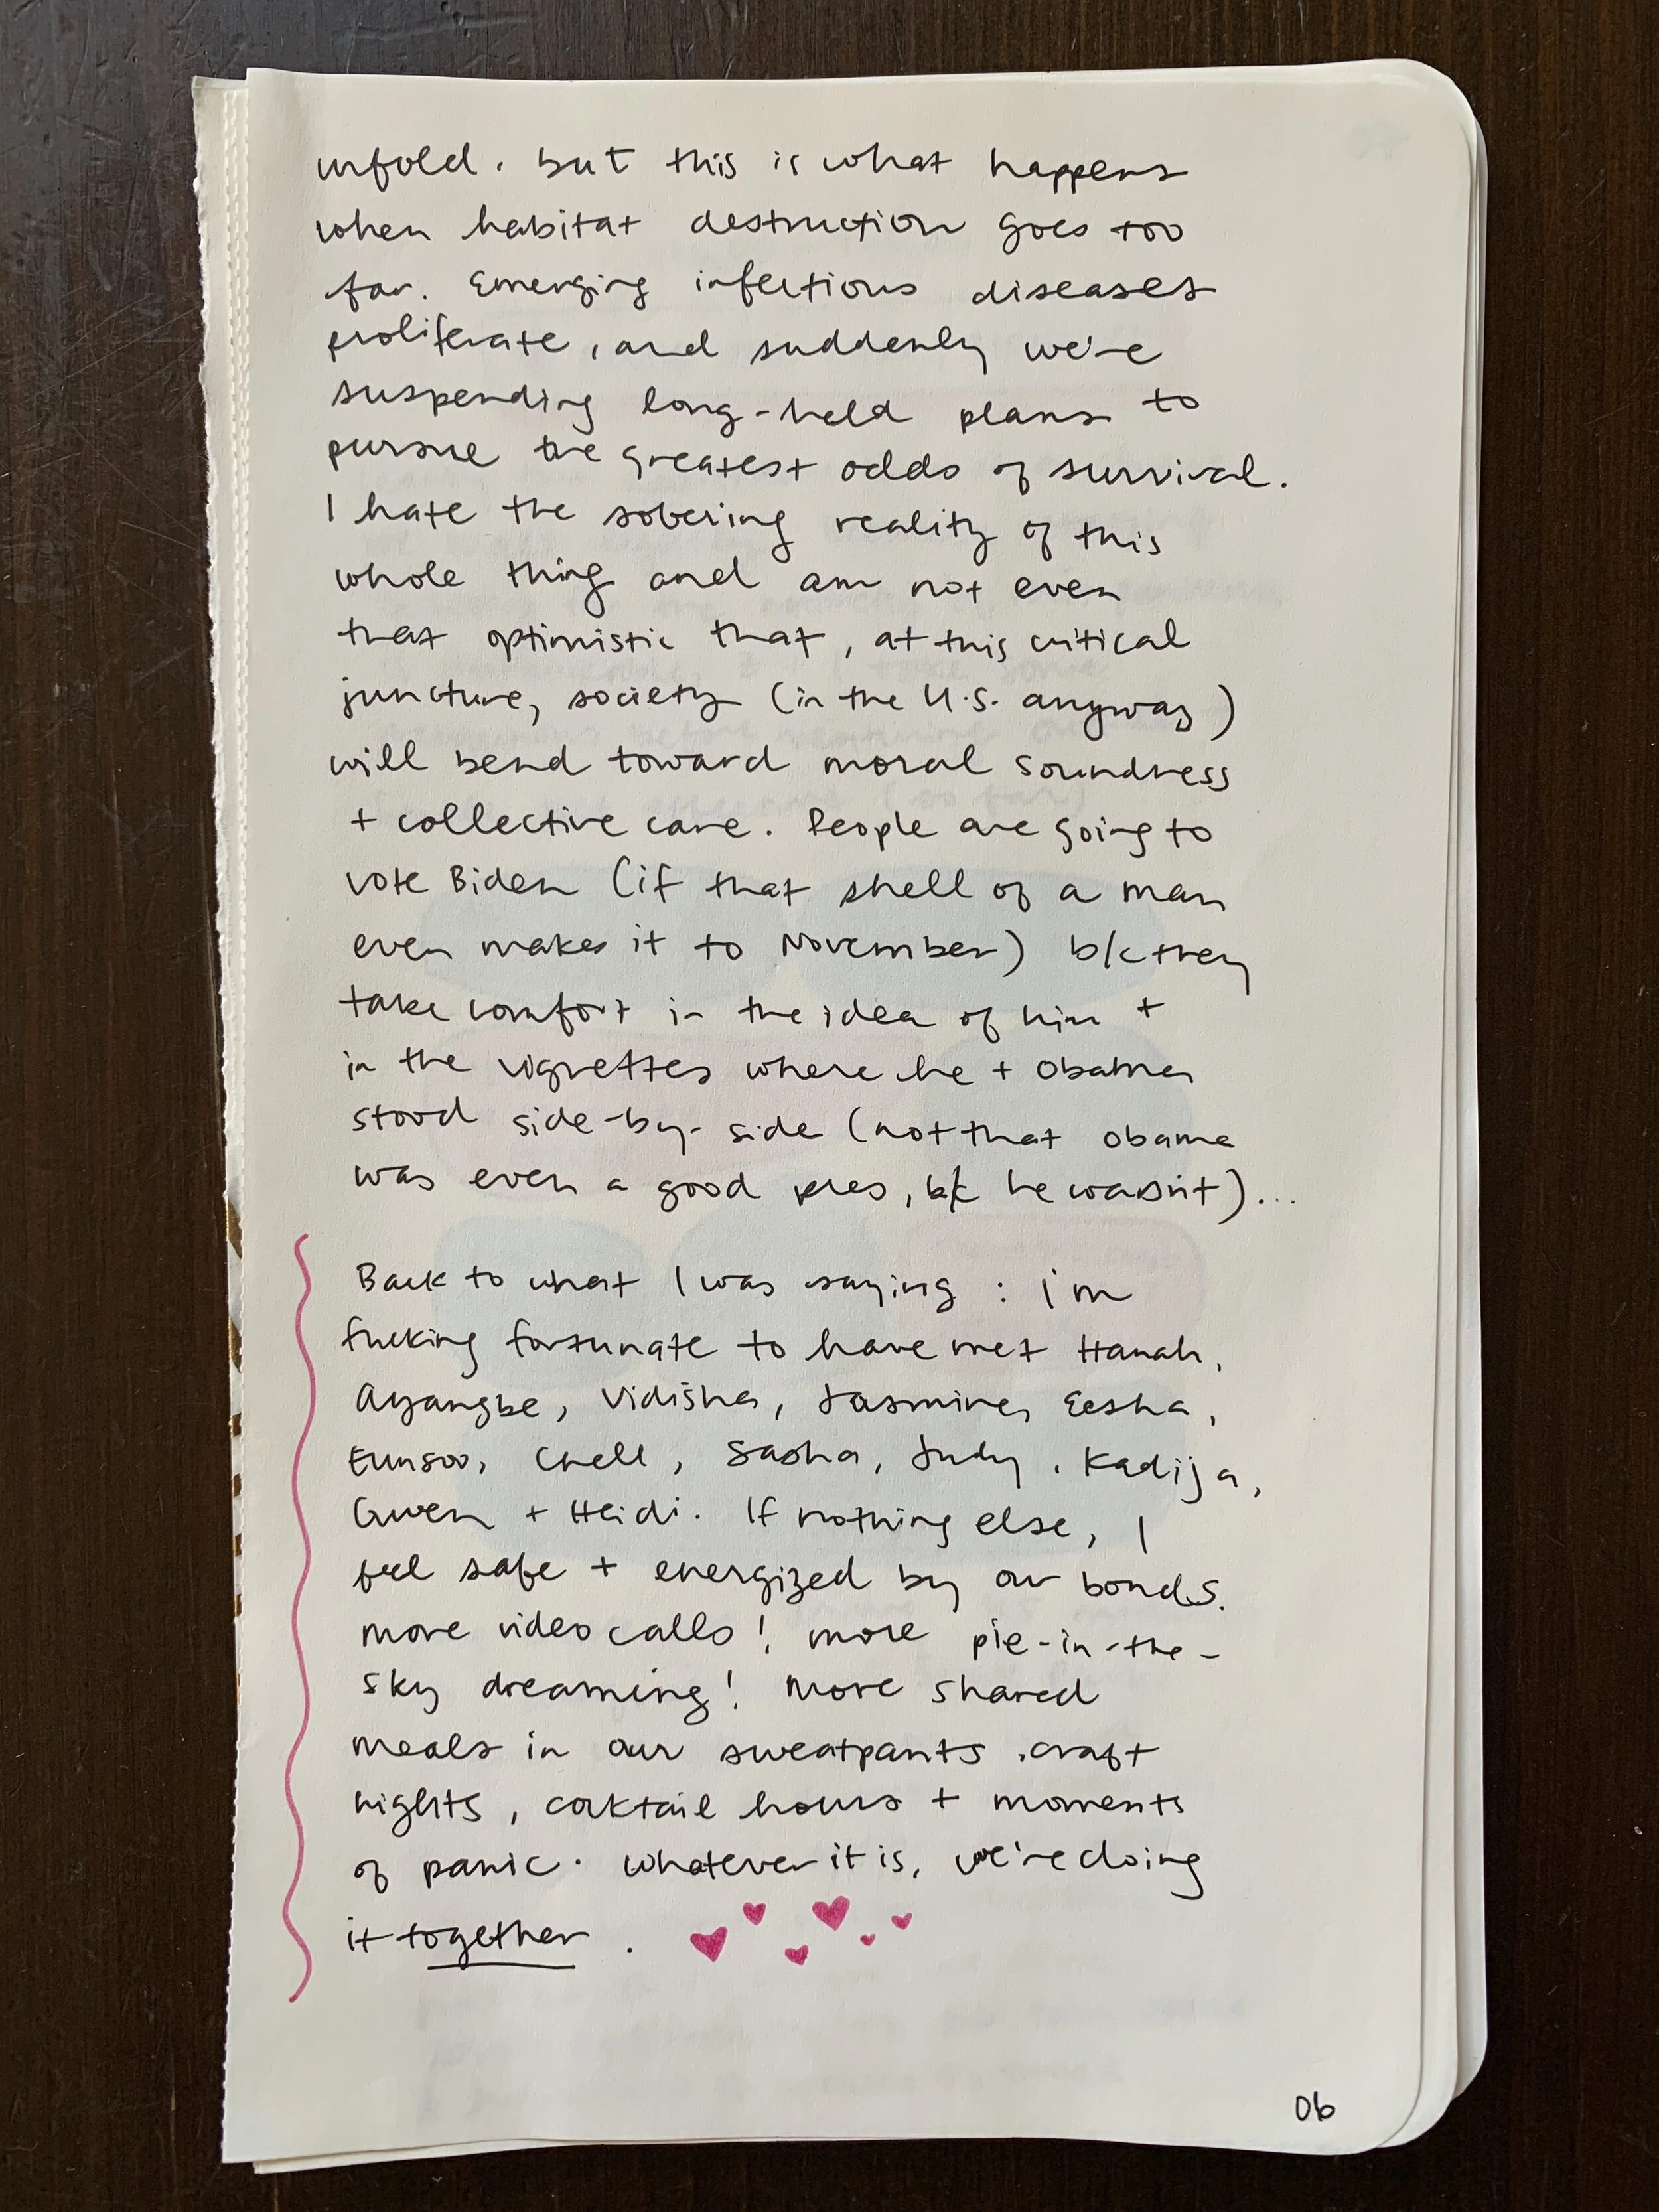 unfold. but this is what happens
when habitat destruction goes too
far. Emerging infectious diseases
proliferate, and suddenly we're
suspending long-held plans to
pursue the greatest odds of survival.
I hate the sobering reality of this
whole thing and am not even
that optimistic that, at this critical
juncture, society (in the U.S. anyway)
will bend toward moral soundness
+ collective care. People are going to
vote Biden (if that shell of a man
even makes it to November) b/c they
take comfort in the idea of him +
in the vignettes where he + Obama
stood side-by-side (not that Obama
was even a good pres, b/c he wasn't)...
Back to what I was saying: i'm
fucking fortunate to have met Hanah,
Ayangbe, Vidisha, Jasmine, Eesha,
Eunsoo, Chell, Sasha, Judy, Kadija,
Gwen + Heidi. If nothing else, I
feel safe + energized by our bonds.
more video calls! more pie-in-the-
sky dreaming! More shared
meals in our sweatpants, craft
nights, cocktail hours + moments
of panic. whatever it is, we're doing
it together.
06